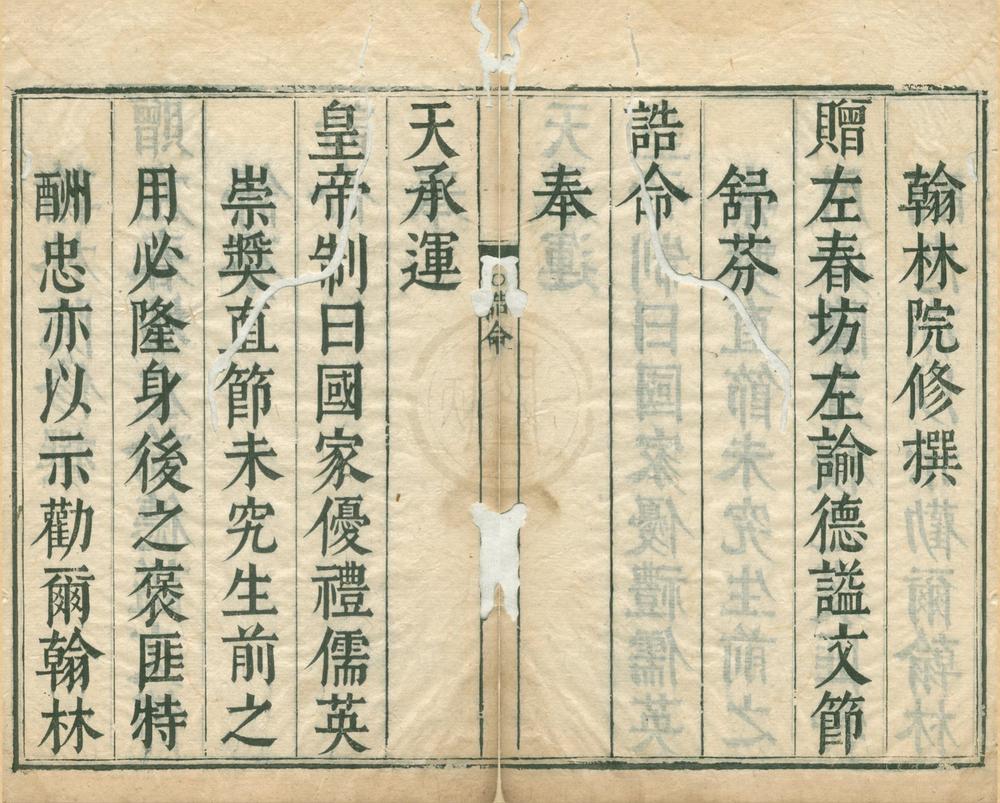 翰林院修撰
贈左春坊左諭德謚文節
舒芬
誥命
奉
誥命
天承運
皇帝制曰國家優禮儒英
崇奬直節未究生前之
用必隆身後之褒匪特
酬忠亦以示勸爾翰林